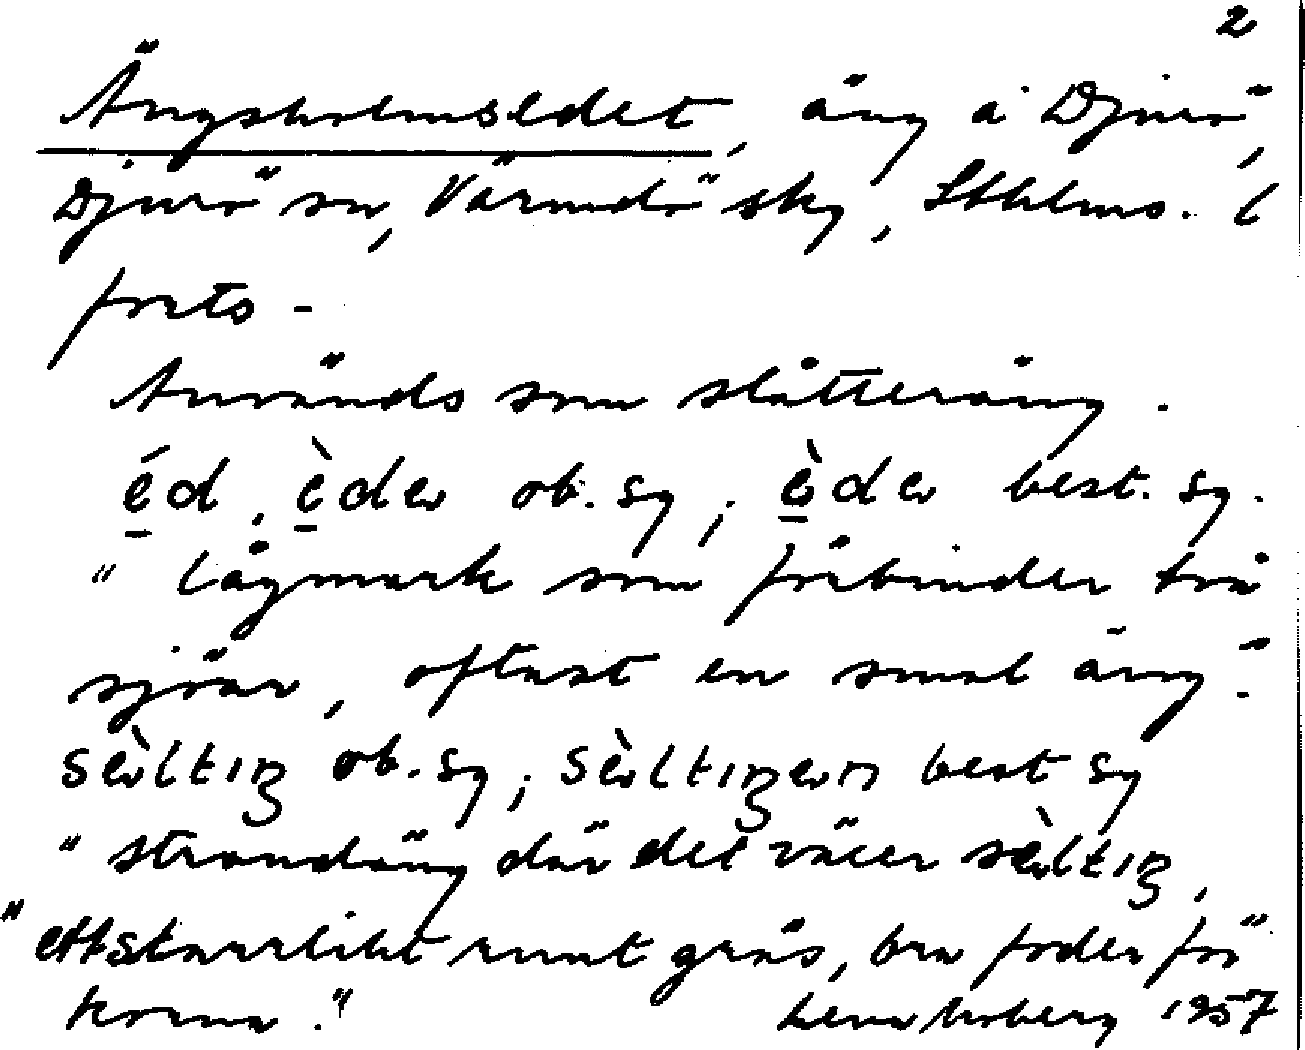 2
Ängsholmsedet, äng å Djurö,
Djurö sn, Värmdö sky, Sthlms. l
forts -
Används som slåtteräng.
éd, èder ob. sg; èder best. sg.
" lågmark som förbinder två
sjöar, oftast en smal äng".
sèltıŋ ob. sg; sèltıŋen best sg
" strandäng där det växer sèltıŋ,
" ett starrlikt runt gräs, bra foder för
korna."
Lena Moberg 1957